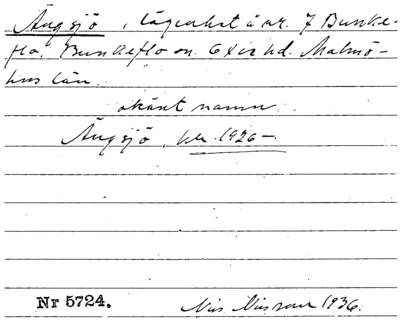 Ängsjö, lägenhet å nr. 7 Bunke-
flo. Bunkeflo sn. Oxie hd. Malmö-
hus län.
okänt namn.
Ängsjö, 1926–
Nr 5724.
Nils Nilsson 1936.